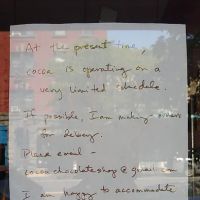 At the present time,
cocoa is operating on a
very limited schedule.
If possible, I am making orders
for delivery.
Please email -
cocoachocolateshop@gmail.com
I am happy to accommodate